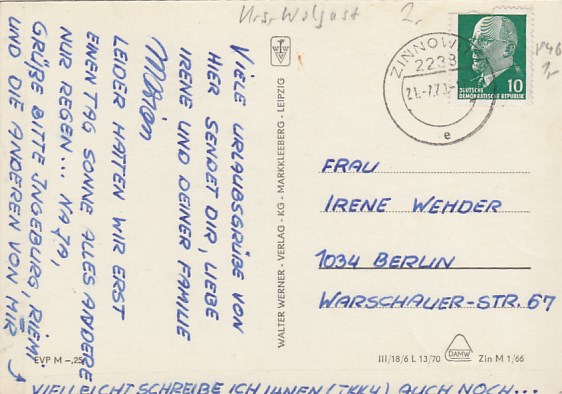 Krs. Wolgast
2.
VIELE URLAUBSGRÜßE VON
HIER SENDET DIR, LIEBE
IRENE UND DEINER FAMILIE
Marion
LEIDER HATTEN WIR ERST
EINEN TAG SONNE ALLES ANDERE
NUR REGEN... NAJA,
GRÜßE BITTE INGEBURG, RIEMI
UND DIE ANDEREN VON MIR
VIELLEICHT SCHREIBE ICH IHNEN (IKK4) AUCH NOCH...
EVP M -,25
WALTER WERNER - VERLAG - KG - MARKKLEEBERG - LEIPZIG
ZINNOWITZ
2238
e
10
DEUTSCHE
DEMOKRATISCHE REPUBLIK
P46
1,-
FRAU
IRENE WEHDER
1034 BERLIN
WARSCHAUER-STR. 67
III/18/6 L 13/70
DAMW
Zin M 1/66